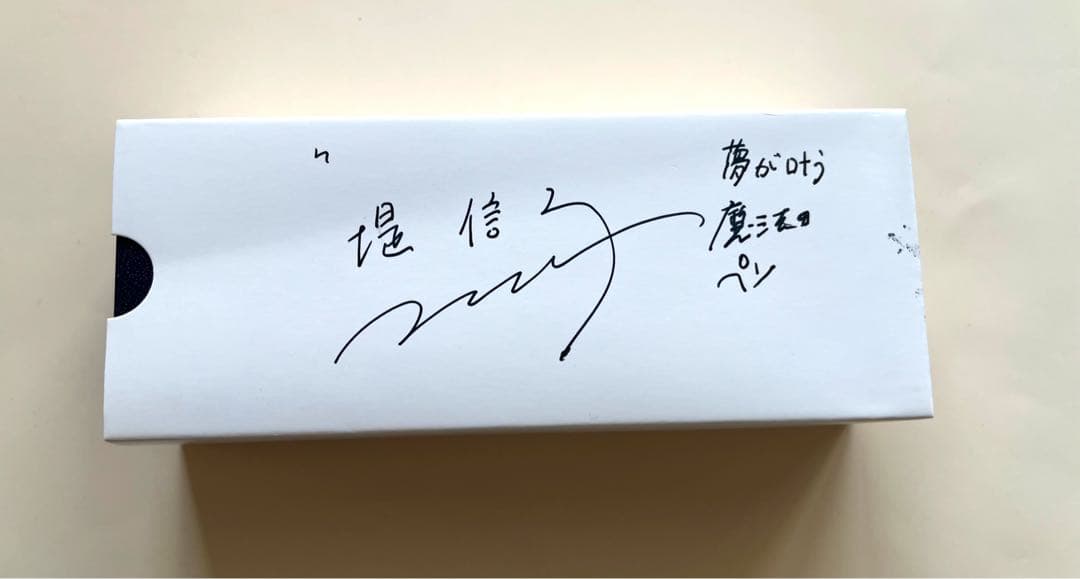 堤 信子
夢が叶う
魔法の
ペン